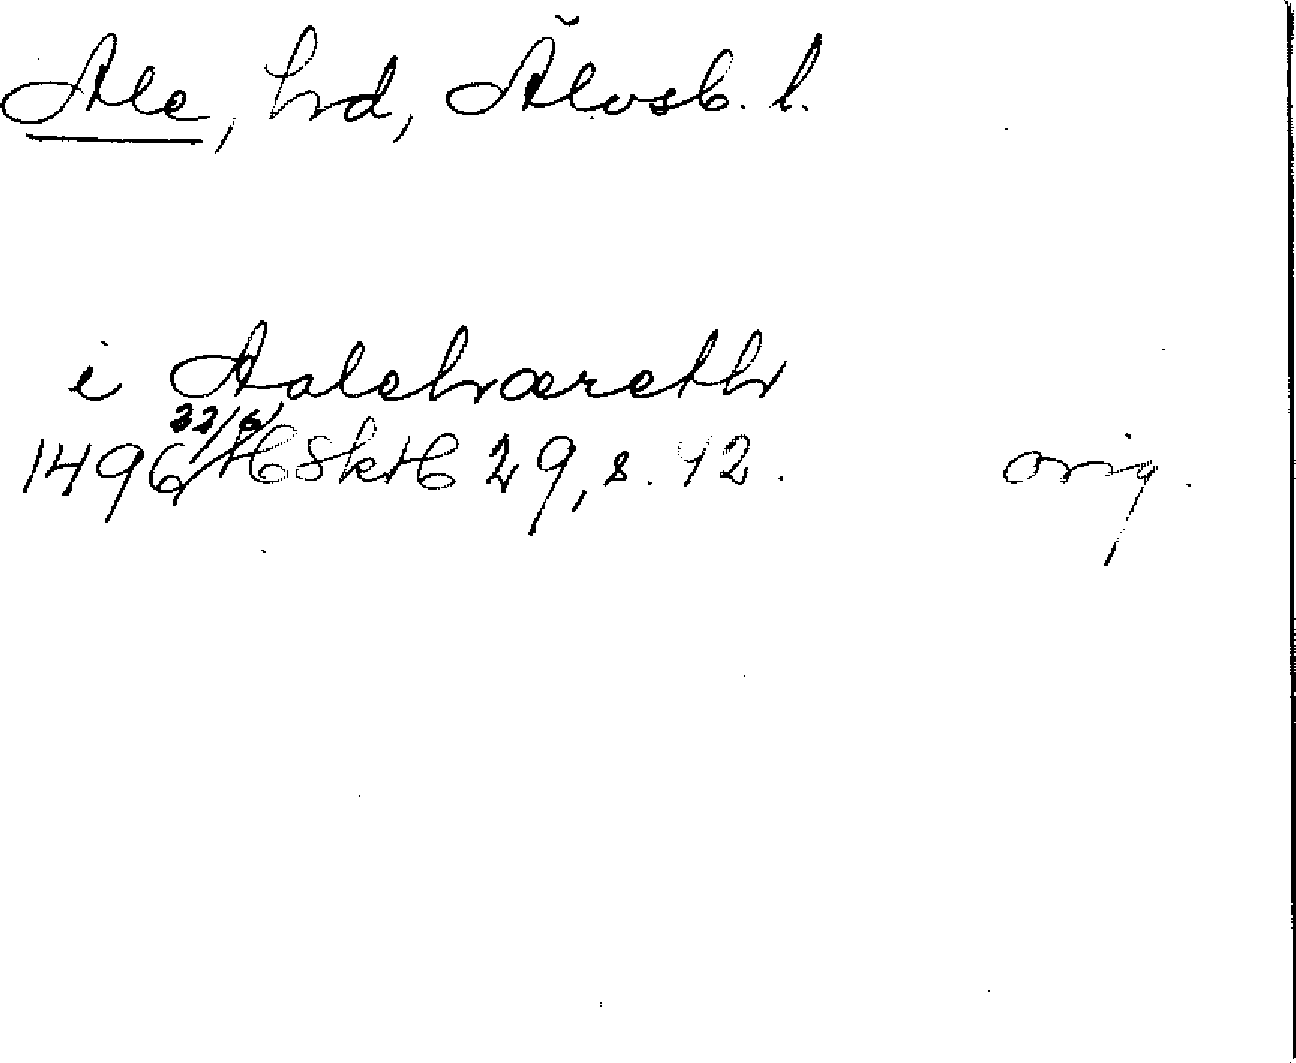 Ale, hd, Älvsb. l.
i Aalehæreth
1496 22/6 HSkH 29, s. 42. orig.